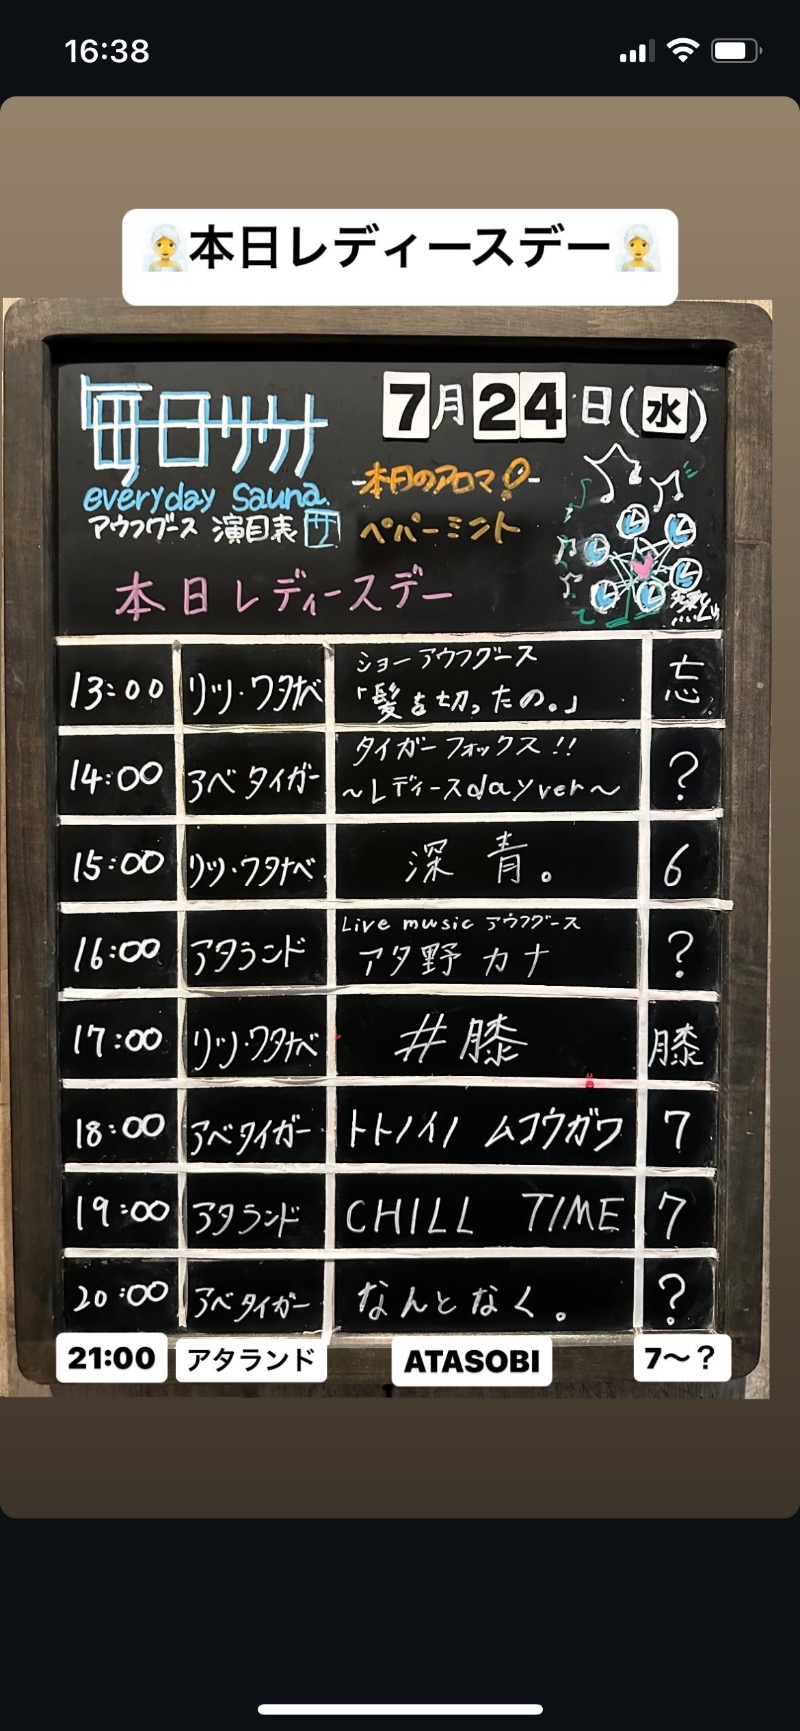 16:38
本日レディースデー
毎日サウナ
7月24日(水)
everyday Sauna.
アウフグース 演目表 サ
-本日のアロマ!-
ペパーミント
本日レディースデー
13:00 リッツ・ワタナベ ショーアウフグース 「髪を切ったの。」 忘
14:00 アベタイガー タイガーフォックス!! 〜レディースday ver〜 ?
15:00 リッツ・ワタナベ 深青。 6
16:00 アタランド Live music アウフグース アタ野カナ ?
17:00 リッツ・ワタナベ #膝 膝
18:00 アベタイガー トトノイノ ムコウガワ 7
19:00 アタランド CHILL TIME 7
20:00 アベタイガー なんとなく。 ?
21:00 アタランド ATASOBI 7〜?